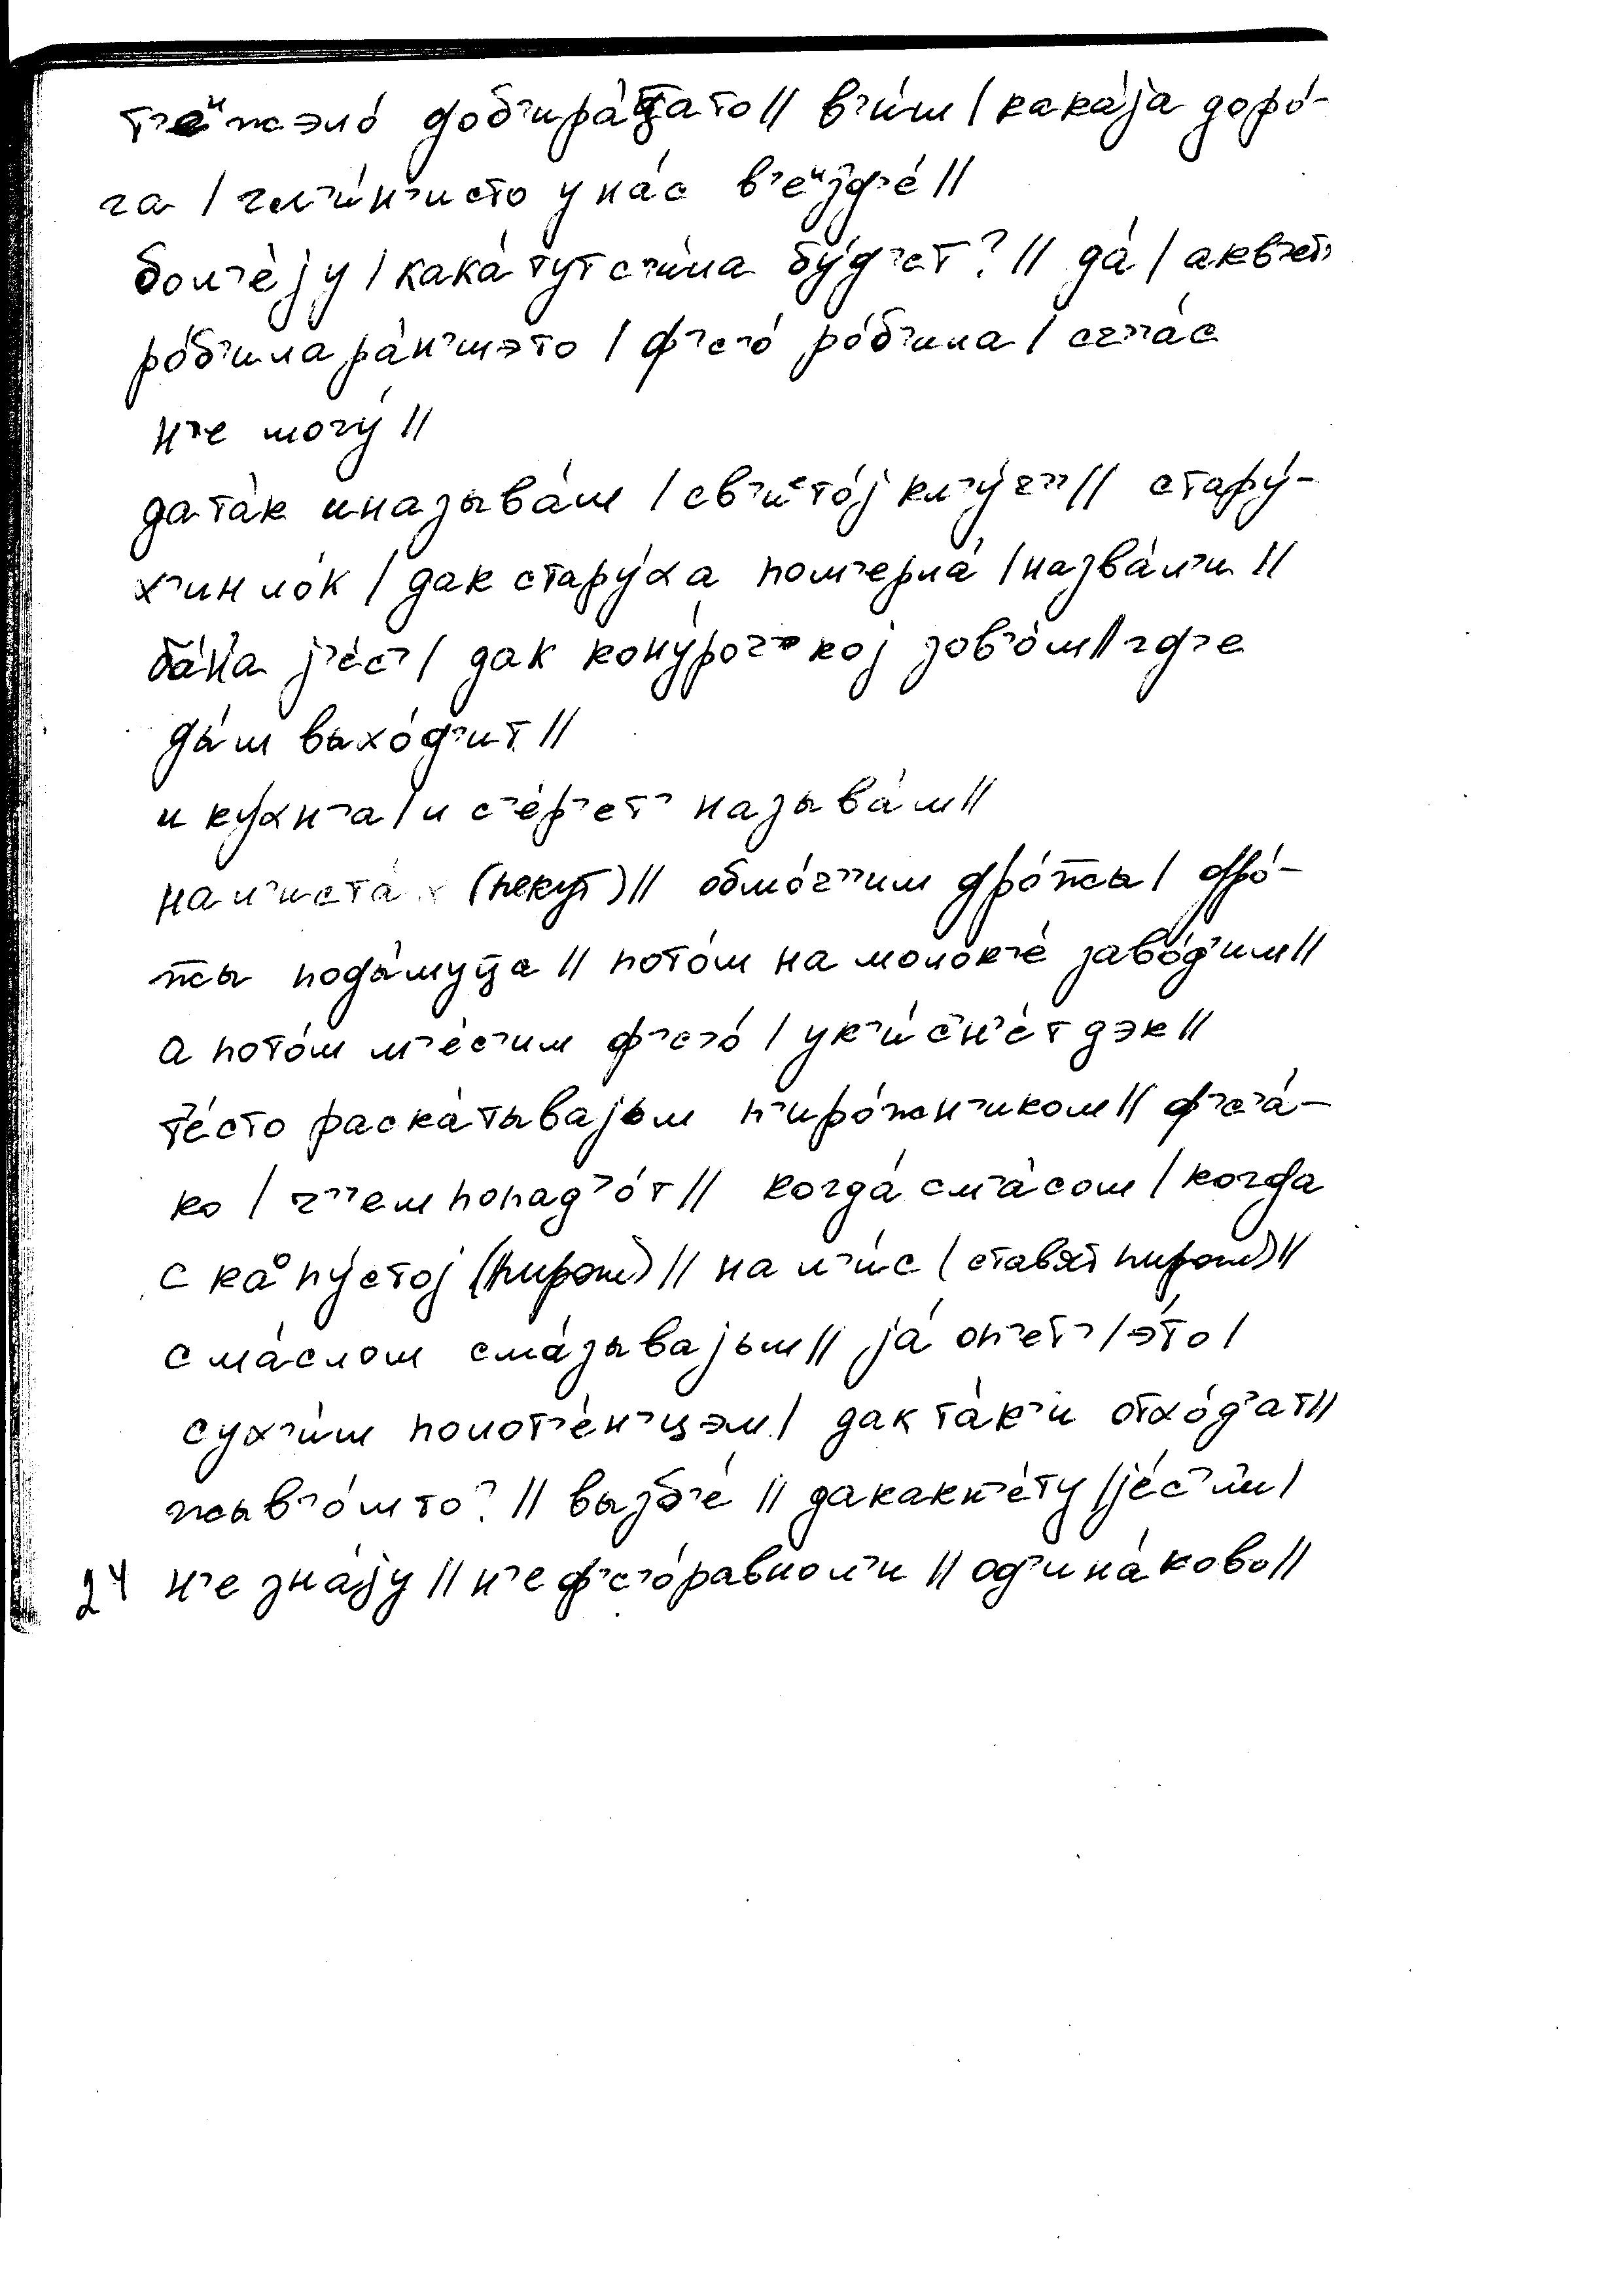 т'еⁱжэло́ доб'ира́ц̄ато // в'и́ш / кака́jа доро́-
га / гл'и́н'исто у на́с в'еⁱзд'е́ //
бол'е́jу / кака́ тут с'и́ла бу́д'ет? // да́ / а кв'ет'
ро́б'ила ра́н'шэто / ф'с'о́ ро́б'ила / сч''а́с
н'е могу́ //
да та́к и называ́ш / св'иᵉто́j кл'у́ч'' // стару́-
х'ин ло́к / дак стару́ха пом'ерла́ / назва́л'и //
ба́н'а jе́с' / дак кону́роч''коj зов'о́м // гд'е
ды́м выхо́д'ит //
и ку́хн'а / и с'е́р'ет' называ́м //
на л'иста́х (пекут) // обмо́ч''им дро́жжы / дро́-
жжы поды́муц̄а // пото́м на молок'е́ заво́д'им //
а пото́м м'е́с'им ф'с'о́ / ук'и́с'н'ет дэк //
т'е́сто раска́тываjьм п'иро́жн'иком // ф'с'а́-
ко / ч''ем попад'о́т // когда́ с м'а́сом / когда
с каᵒпу́стоj (пирог) // на л'и́с (ставят пирог) //
с ма́слом сма́зываjьм // jа́ оп'ет' / э́то /
сух'и́м полот'е́н'цэм / дак та́к и отхо́д'ат //
жыв'о́м то? // в ызб'е́ // да как н'е́ту / jе́с'л'и /
24 н'е зна́jу // н'е ф'с'о́ равно л'и // од'ина́ково //